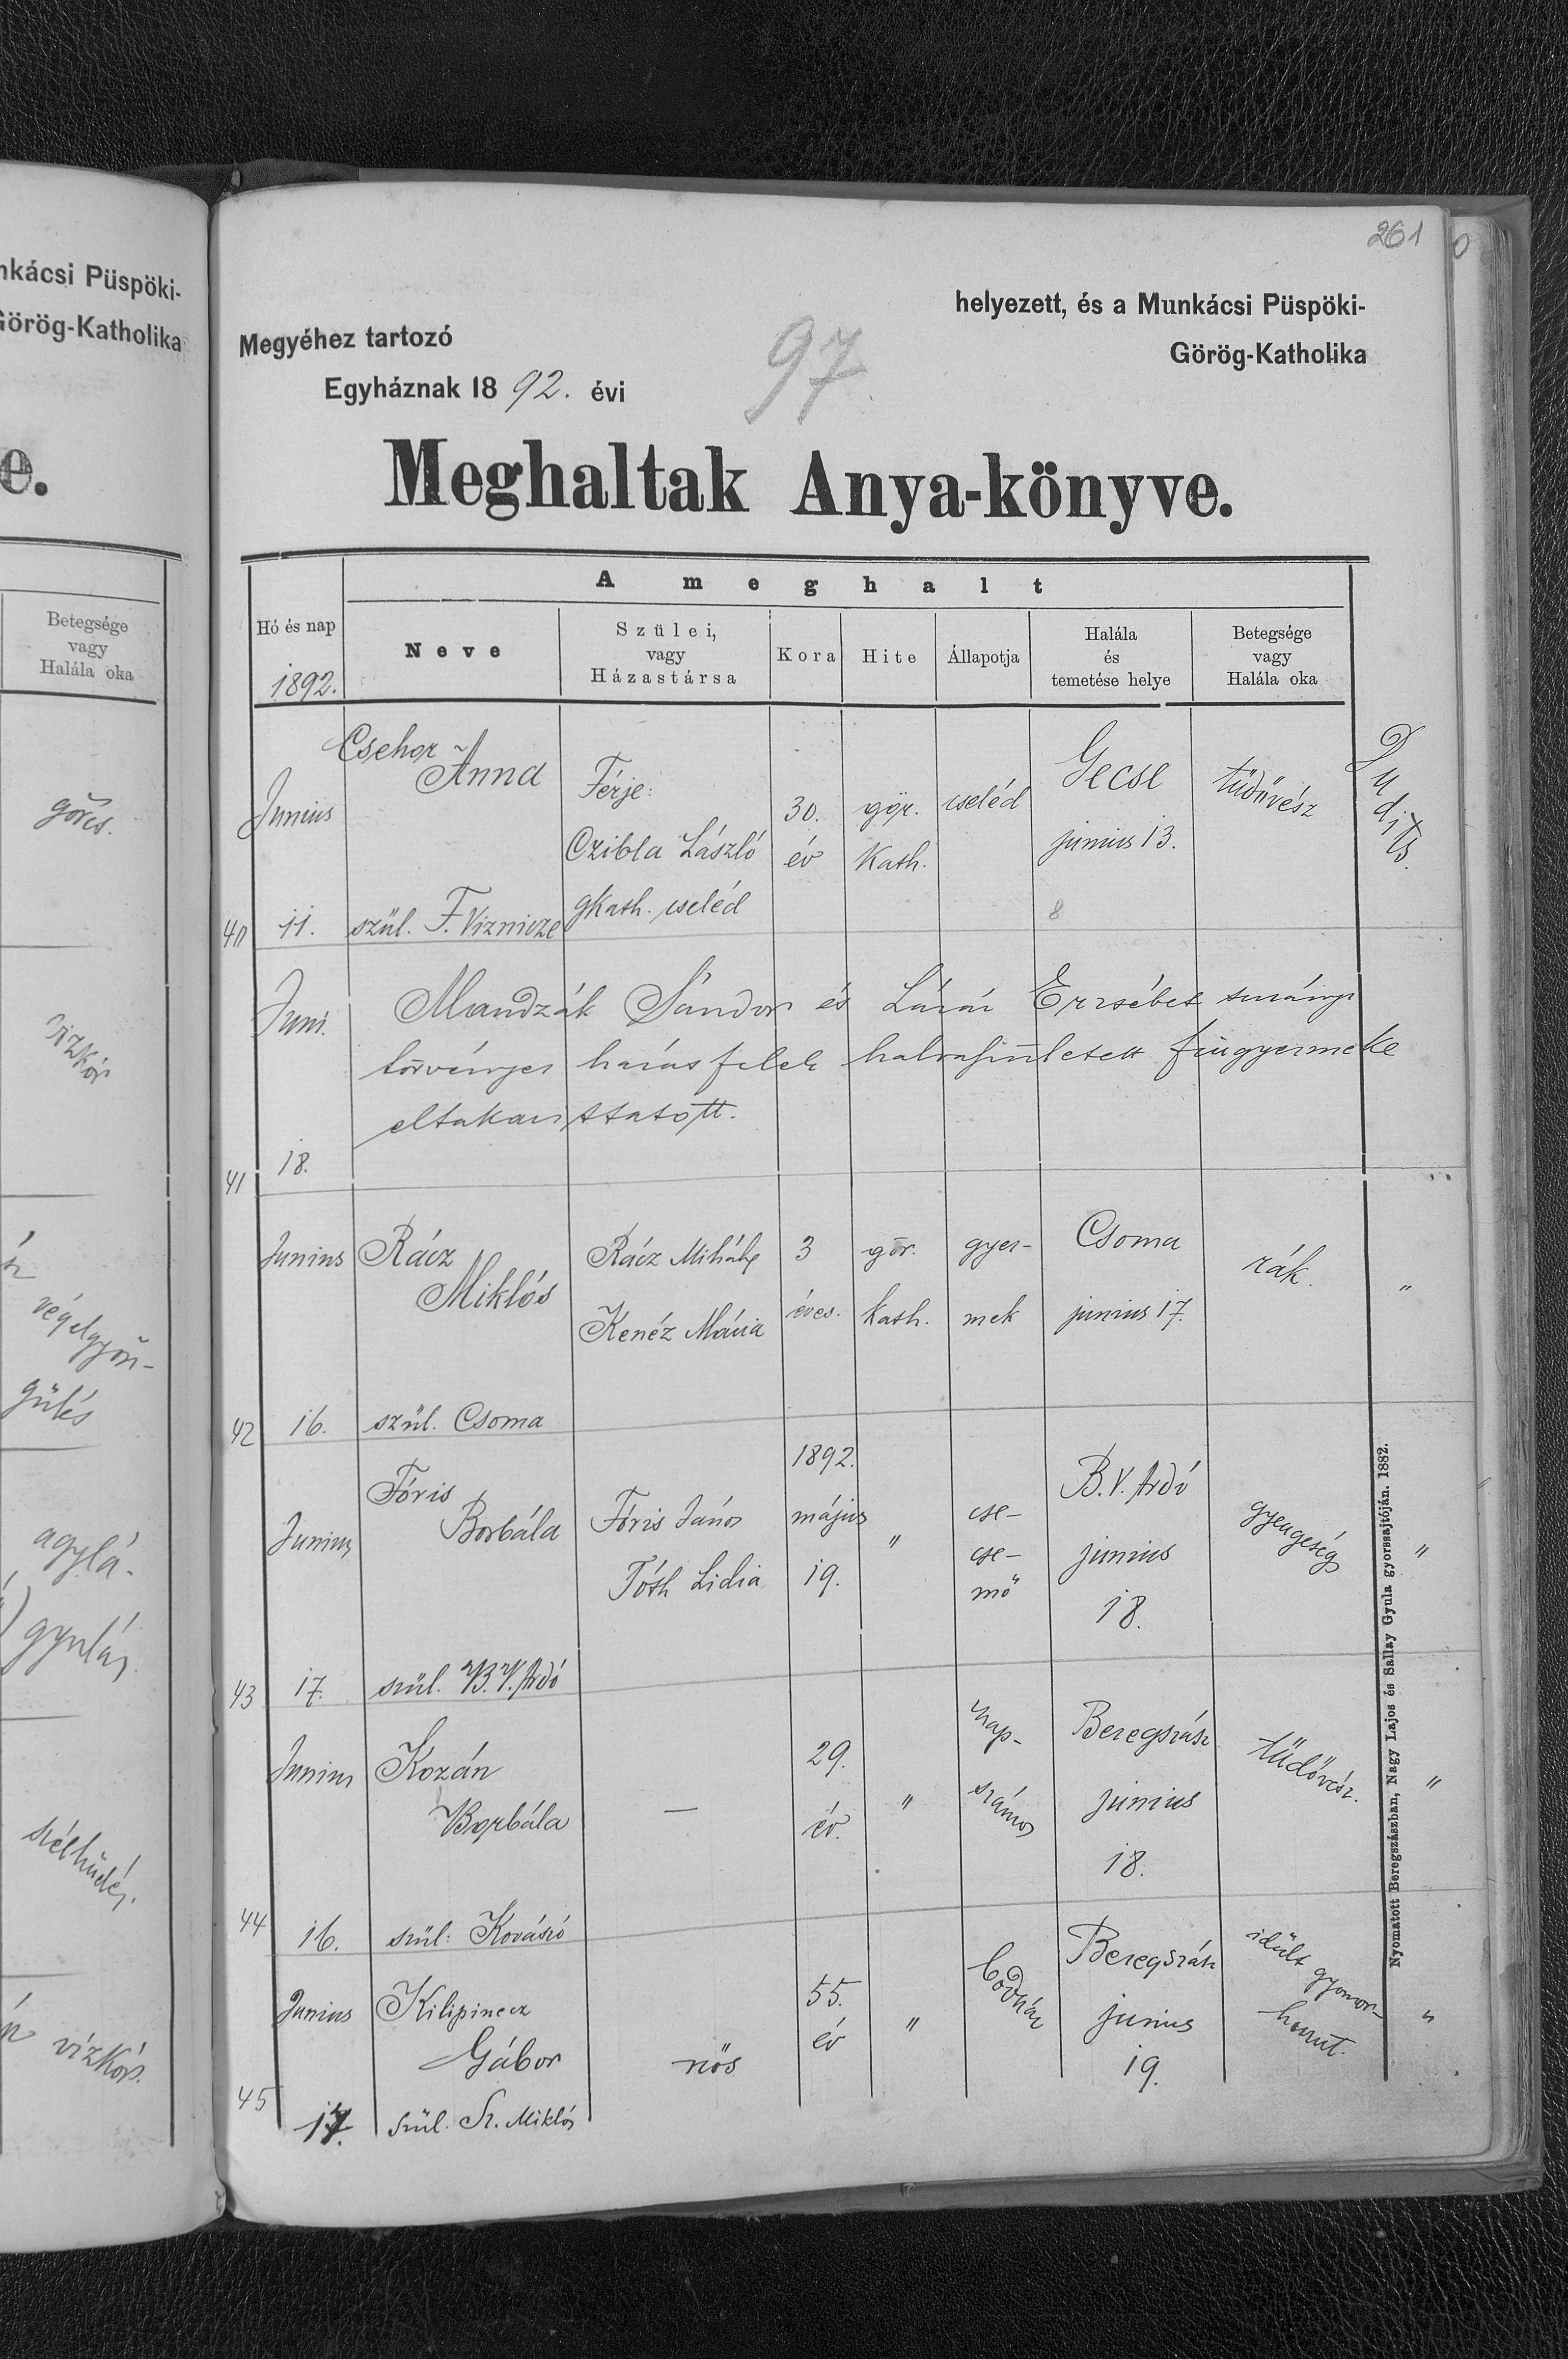 nkácsi Püspöki-
Görög-Katholika
e.
Betegsége
vagy
Halála oka
görcs.
vizkór
végelgyön-
gülés
agylá-
gyulás
szélhűdés.
vízkór.
261
helyezett, és a Munkácsi Püspöki-
Megyéhez tartozó
Görög-Katholika
Egyháznak 1892. évi
97
Meghaltak Anya-könyve.
A meghalt
Hó és nap
1892.
Neve
Szülei,
vagy
Házastársa
Kora
Hite
Állapotja
Halála
és
temetése helye
Betegsége
vagy
Halála oka
40
Junius
11.
Csehor
Anna
szül. F. Viznicze
Férje:
Czibla László
gkath. cseléd
30.
év
gör.
Kath.
cseléd
Gecse
junius 13.
8
tüdővész
Dudits
41
Juni.
18.
Mandzák Sándor és Lázár Erzsébet
törvényes házasfelek halvaszületett fiúgyermeke
eltakaríttatott.
42
Junius
16.
Rácz
Miklós
szül. Csoma
Rácz Mihály
Kenéz Mária
3
éves.
gör.
kath.
gyer-
mek
Csoma
junius 17.
rák.
"
43
Junius
17.
Fóris
Borbála
szül. B.V. Ardó
Fóris János
Tóth Lidia
1892.
május
19.
"
cse-
cse-
mő
B.V. Ardó
junius
18.
gyengeség
"
44
Junius
16.
Kozán
Borbála
szül: Kovászó
—
29.
év.
"
nap-
számos
Beregszász
junius
18.
tüdővész.
"
45
Junius
17.
Kilipinecz
Gábor
szül. Sz. Miklós
nős
55.
év
"
Beregszász
junius
19.
idült gyomor-
hurut.
"
Nyomatott Beregszászban, Nagy Lajos és Sallay Gyula gyorssajtóján. 1882.